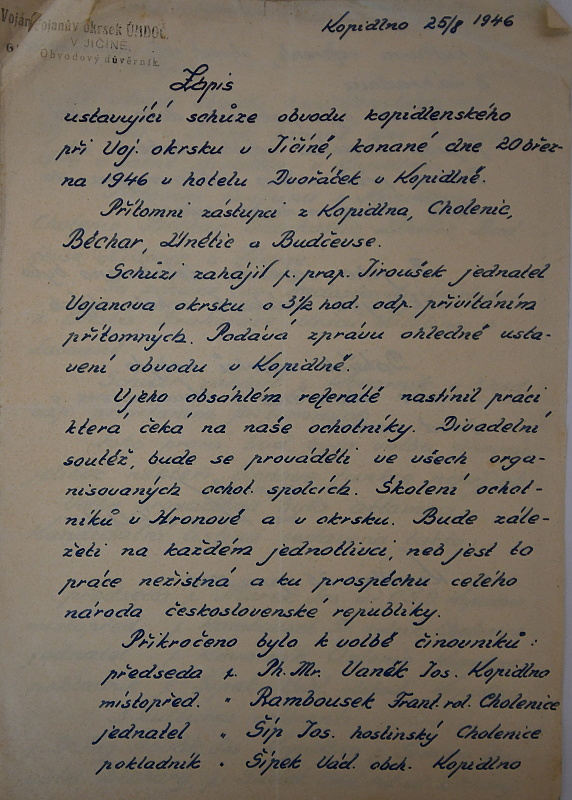 Vojanův okrsek ÚMDOČ.
V JIČÍNĚ.
Obvodový důvěrník.
Kopidlno 25/8 1946
Zápis
ustavující schůze obvodu kopidlenského
při Voj. okrsku v Jičíně, konané dne 20 břez-
na 1946 v hotelu Dvořáček v Kopidlně.
Přítomni zástupci z Kopidlna, Cholenic,
Běchar, Únětic a Budčevse.
Schůzi zahájil p. prap. Jiroušek jednatel
Vojanova okrsku o 3½ hod. odp. přivítáním
přítomných. Podává zprávu ohledně usta-
vení obvodu v Kopidlně.
V jeho obsáhlém referátě nastínil práci
která čeká na naše ochotníky. Divadelní
soutěž, bude se prováděti ve všech orga-
nisovaných ochot. spolcích. Školení ochot-
níků v Hronově a v okrsku. Bude zále-
žeti na každém jednotlivci, neb jest to
práce nezištná a ku prospěchu celého
národa československé republiky.
Přikročeno bylo k volbě činovníků:
předseda p. Ph. Mr. Vaněk Jos. Kopidlno
místopřed. " Rambousek Frant. rol. Cholenice
jednatel " Šíp Jos. hostinský Cholenice
pokladník " Šípek Vád. obch. Kopidlno